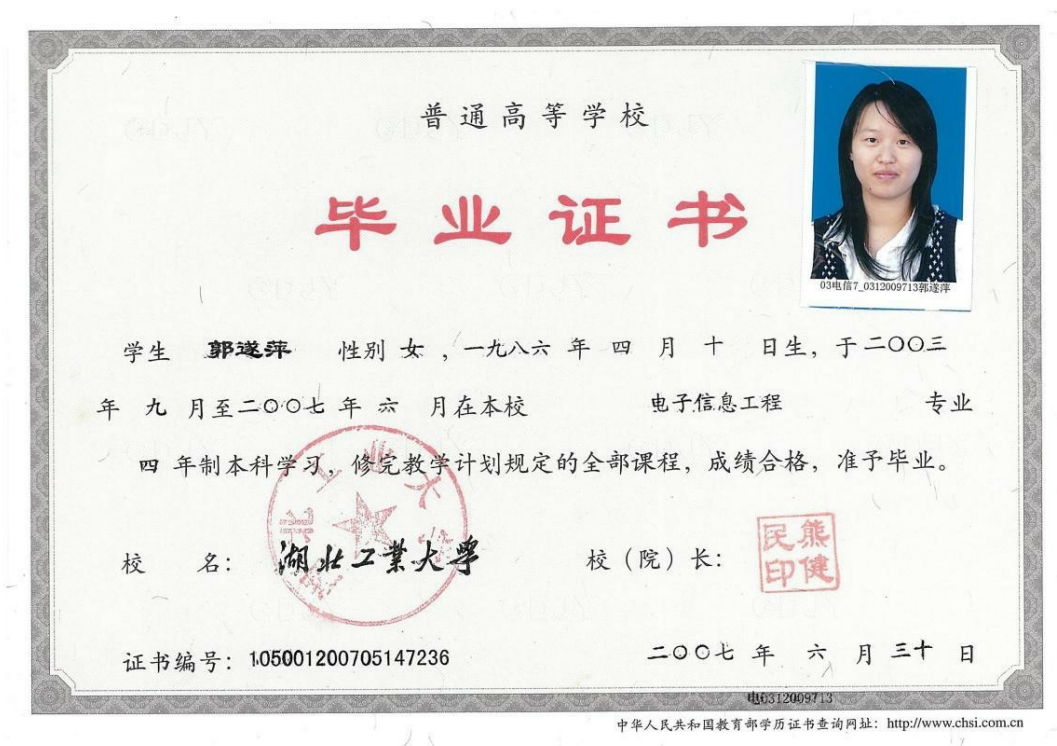 普通高等学校
毕业证书
03电信7_0312009713郭遂萍
学生 郭遂萍 性别 女 ，一九八六 年 四 月 十 日生，于二〇〇三
年 九 月至二〇〇七 年 六 月在本校 电子信息工程 专业
四 年制本科学习，修完教学计划规定的全部课程，成绩合格，准予毕业。
校 名： 湖北工業大學 校（院）长： 熊健民印
证书编号：105001200705147236 二〇〇七 年 六 月 三十 日
电0312009713
中华人民共和国教育部学历证书查询网址：http://www.chsi.com.cn